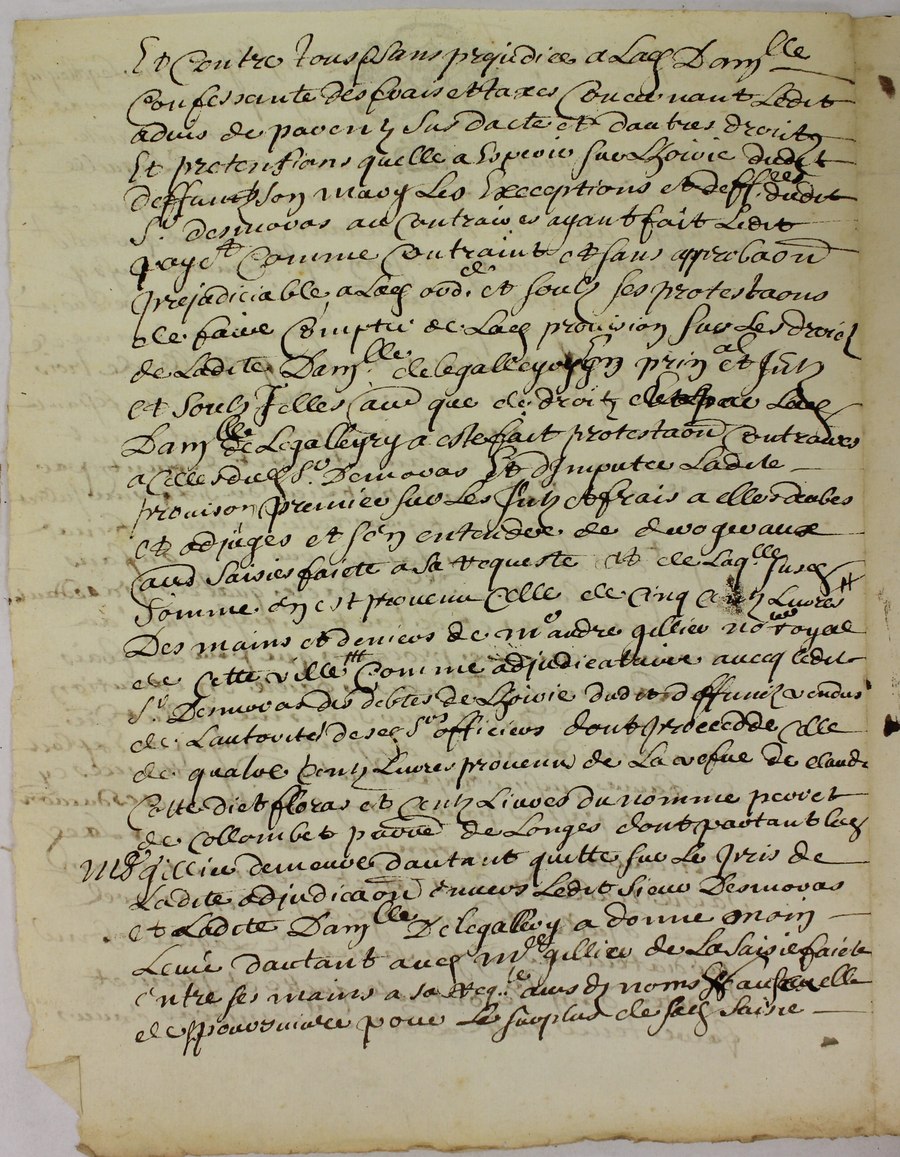 Et contre tous sans prejudice a Lad Damlle
Confessante des frais et taxes Concernant Ledit
aduis de parentz Susdacte et dautres droitz
Et pretensions quelle a Esperer sur Lhoirie dudit
deffunct son mary Les Exceptions et deffces dudit
Sr desmoras au Contraires ayant fait Ledit
payet Comme Contraint et sans approbaon
prejudiciable a Lad ordce et soubz ses protestaons
de faire Compter de Lad prouision sur Les droictz
de Ladite Damlle de legallery en prinal et Intz
et soubz Jcelles aud que de droit par Lad
Damlle de Legallery a este fait protestaon Contraires
a Celles dud Sr Demoras Et dJmputer Ladite
prouison premier sur Les Intz et frais a elles deubes
et adjuges et sen entendre de deroger aux
aud saisies faicte a sa requeste et de Laqlle susd
Somme en est prouenu Celle de Cinq Centz Liures
Des mains et deniers de Me andre gillier nore royal
de Cette ville Comme adjudicataire auecq ledit
Sr Desmoras des debtes de Lhoirie dudit deffunct vendus
de Lautorité de ses Srs officiers dont procede Celle
de quatre Centz Liures prouenu de La de Claude
Colle dict floras et Centz Liures du nomme perret
de Collombet de Longes dont partant led
Me gillier demeure dautant quitte sur Le pris de
Ladite adjudicaon enuers Ledit sieur Desmoras
et Ladite Damlle De legallery a donne main
Leuée dautant aud Me gillier de La saisie faicte
entre ses mains a sa reqte aus dz noms elle
de poursuiure pour Le surplus de sad saisie